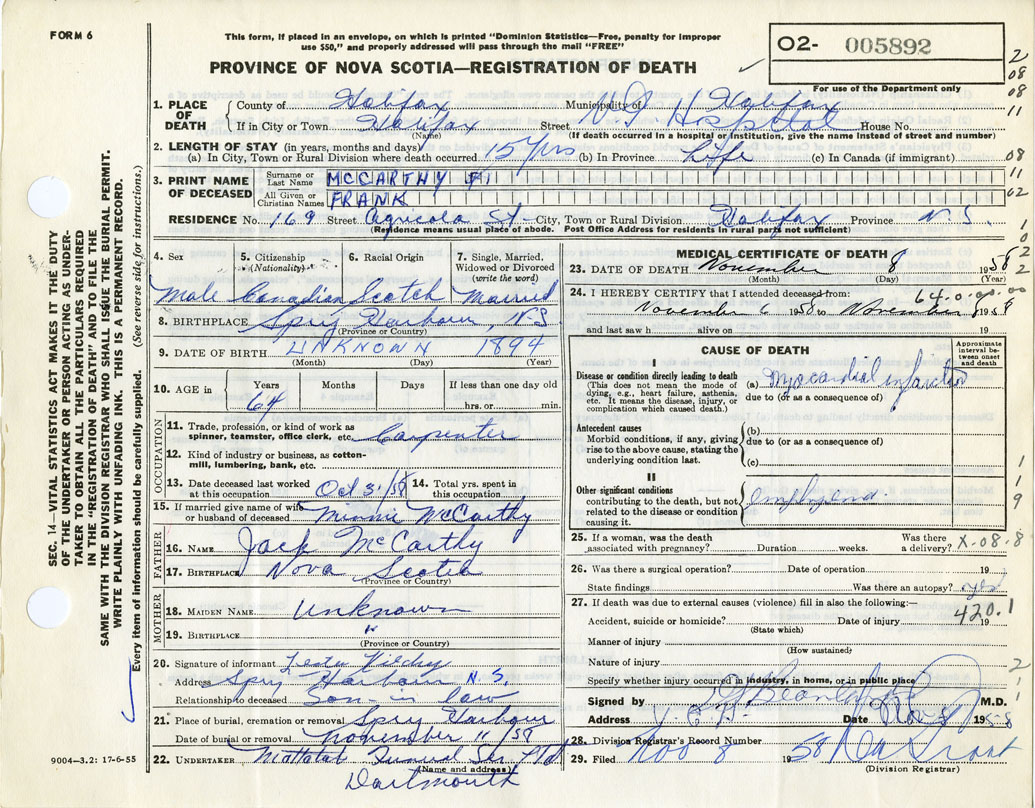 FORM 6
This form, if placed in an envelope, on which is printed "Dominion Statistics—Free, penalty for improper
use $50," and properly addressed will pass through the mail "FREE"
O2- 005892
For use of the Department only
PROVINCE OF NOVA SCOTIA—REGISTRATION OF DEATH
SEC. 14—VITAL STATISTICS ACT MAKES IT THE DUTY
OF THE UNDERTAKER OR PERSON ACTING AS UNDER-
TAKER TO OBTAIN ALL THE PARTICULARS REQUIRED
IN THE "REGISTRATION OF DEATH" AND TO FILE THE
SAME WITH THE DIVISION REGISTRAR WHO SHALL ISSUE THE BURIAL PERMIT.
WRITE PLAINLY WITH UNFADING INK. THIS IS A PERMANENT RECORD.
Every item of information should be carefully supplied. (See reverse side for instructions.)
1. PLACE OF DEATH County of Halifax Municipality of Halifax
If in City or Town Halifax Street V.G. Hospital House No.
(Name) (If death occurred in a hospital or institution, give the name instead of street and number)
2. LENGTH OF STAY (in years, months and days)
(a) In City, Town or Rural Division where death occurred 15 yrs (b) In Province Life (c) In Canada (if immigrant)
3. PRINT NAME OF DECEASED Surname or Last Name MCCARTHY
All Given or Christian Names FRANK
RESIDENCE No. 169 Street Agricola St City, Town or Rural Division Halifax Province N.S.
(Residence means usual place of abode. Post Office Address for residents in rural parts not sufficient)
4. Sex 5. Citizenship (Nationality) 6. Racial Origin 7. Single, Married, Widowed or Divorced (write the word)
Male Canadian Scotch Married
8. BIRTHPLACE Spry Harbour, NS
(Province or Country)
9. DATE OF BIRTH UNKNOWN 1894
(Month) (Day) (Year)
10. AGE in Years Months Days If less than one day old
64 hrs. or min.
OCCUPATION
11. Trade, profession, or kind of work as spinner, teamster, office clerk, etc. Carpenter
12. Kind of industry or business, as cotton-mill, lumbering, bank, etc.
13. Date deceased last worked at this occupation Oct 31/58 14. Total yrs. spent in this occupation
15. If married give name of wife or husband of deceased Minnie McCarthy
FATHER
16. NAME Jack McCarthy
17. BIRTHPLACE Nova Scotia
(Province or Country)
MOTHER
18. MAIDEN NAME Unknown
19. BIRTHPLACE "
(Province or Country)
20. Signature of informant
Address Spry Harbour N.S.
Relationship to deceased Son-in law
21. Place of burial, cremation or removal Spry Harbour
Date of burial or removal November 11/58
22. UNDERTAKER Mattatall Funeral Ser Ltd
(Name and address)
Dartmouth
9004—3.2: 17-6-55
MEDICAL CERTIFICATE OF DEATH
23. DATE OF DEATH November 8 1958
(Month) (Day) (Year)
64.0.00.00
24. I HEREBY CERTIFY that I attended deceased from:
November 6 1958 to November 8 1958
and last saw h alive on 19
CAUSE OF DEATH
Approximate interval between onset and death
I
Disease or condition directly leading to death (a) Myocardial infarction
(This does not mean the mode of dying, e.g., heart failure, asthenia, etc. It means the disease, injury, or complication which caused death.)
due to (or as a consequence of)
Antecedent causes
Morbid conditions, if any, giving rise to the above cause, stating the underlying condition last.
(b)
due to (or as a consequence of)
(c)
II
Other significant conditions
contributing to the death, but not related to the disease or condition causing it.
25. If a woman, was the death associated with pregnancy? Duration weeks. Was there a delivery? X-08.8
26. Was there a surgical operation? Date of operation 19
State findings Was there an autopsy? yes
27. If death was due to external causes (violence) fill in also the following:—
420.1
Accident, suicide or homicide? Date of injury 19
(State which)
Manner of injury
(How sustained)
Nature of injury
Specify whether injury occurred in industry, in home, or in public place
Signed by M.D.
Address Date Nov 8 1958
28. Division Registrar's Record Number
29. Filed Nov 8 1958
(Division Registrar)